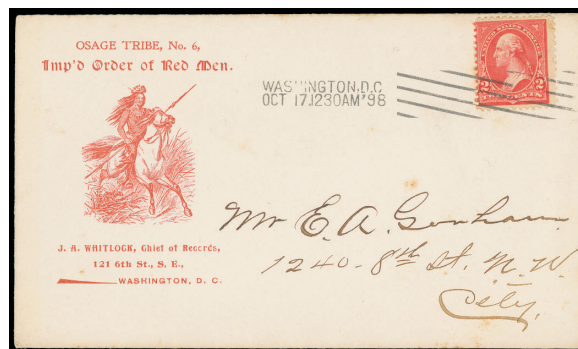 OSAGE TRIBE, No. 6,
Imp'd Order of Red Men.
WASHINGTON,D.C
OCT 17 1230AM '98
2 CENTS 2
J. A. WHITLOCK, Chief of Records,
121 6th St., S. E.,
WASHINGTON, D. C.
Mr E. A. Gorham
1240 - 8th St. N. W.
City